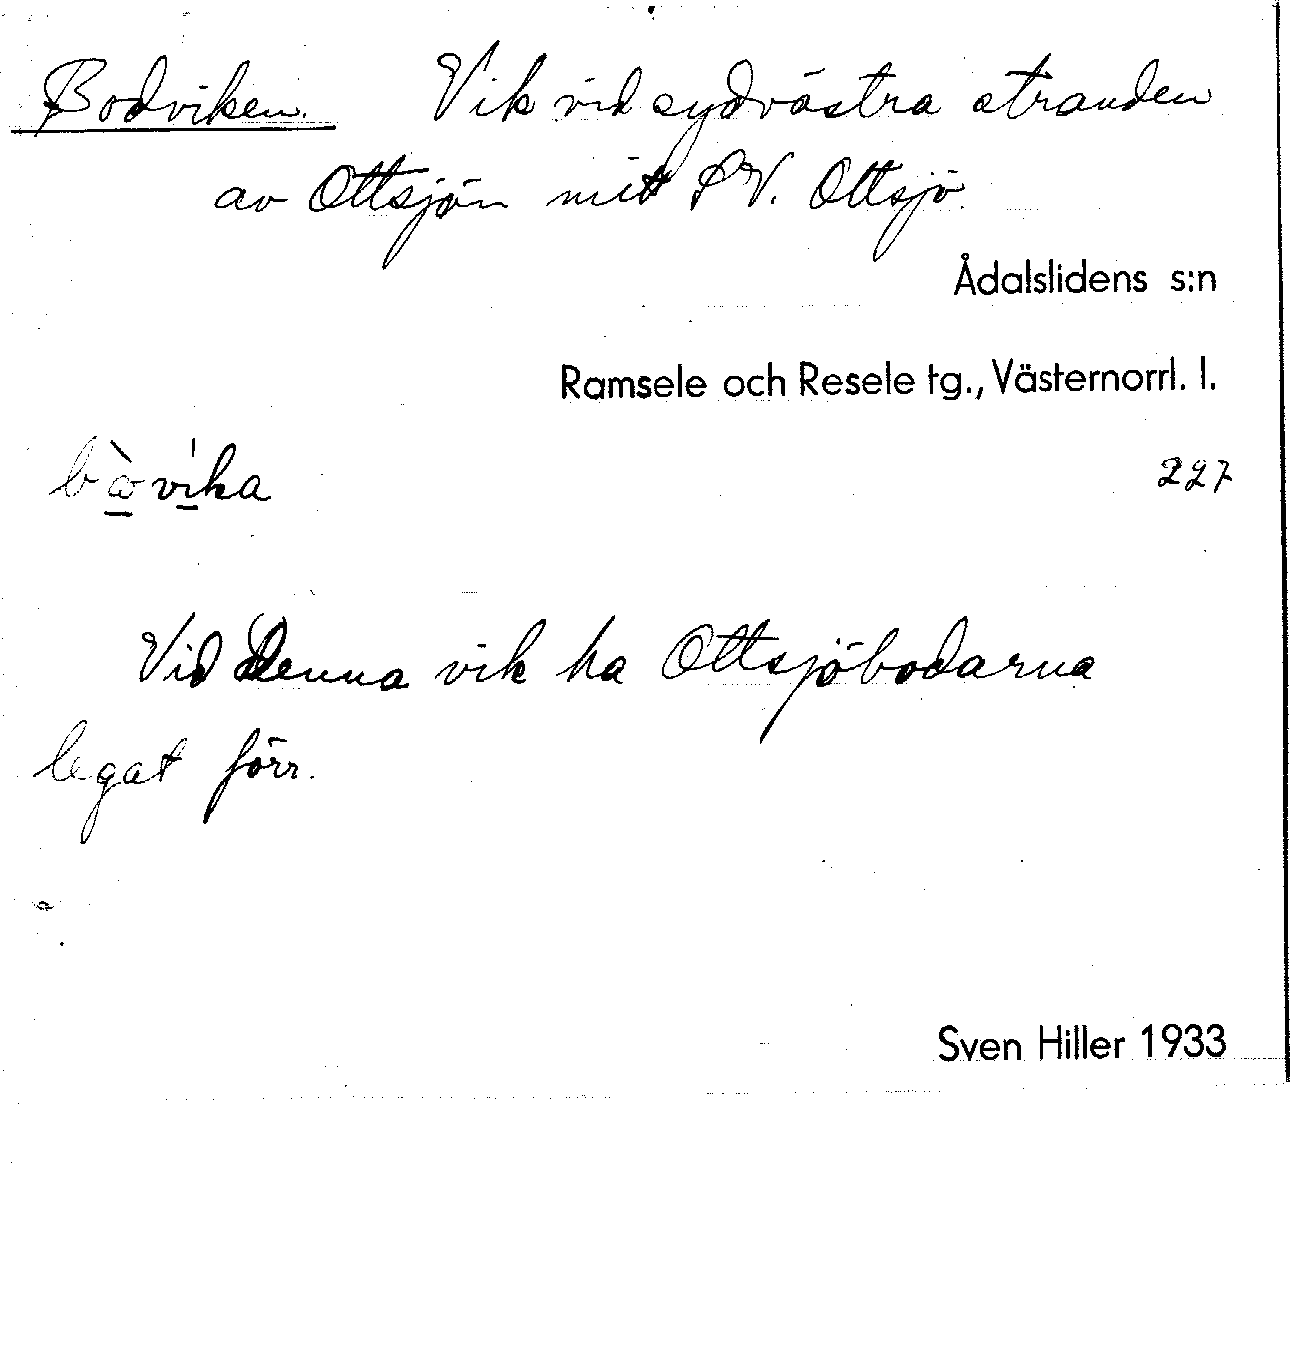 Bodviken. Vik vid sydvästra stranden
av Ottsjön mitt S V. Ottsjö.
Ådalslidens s:n
Ramsele och Resele tg., Västernorrl. l.
227
Vid denna vik ha Ottsjöbodarna
legat förr.
Sven Hiller 1933